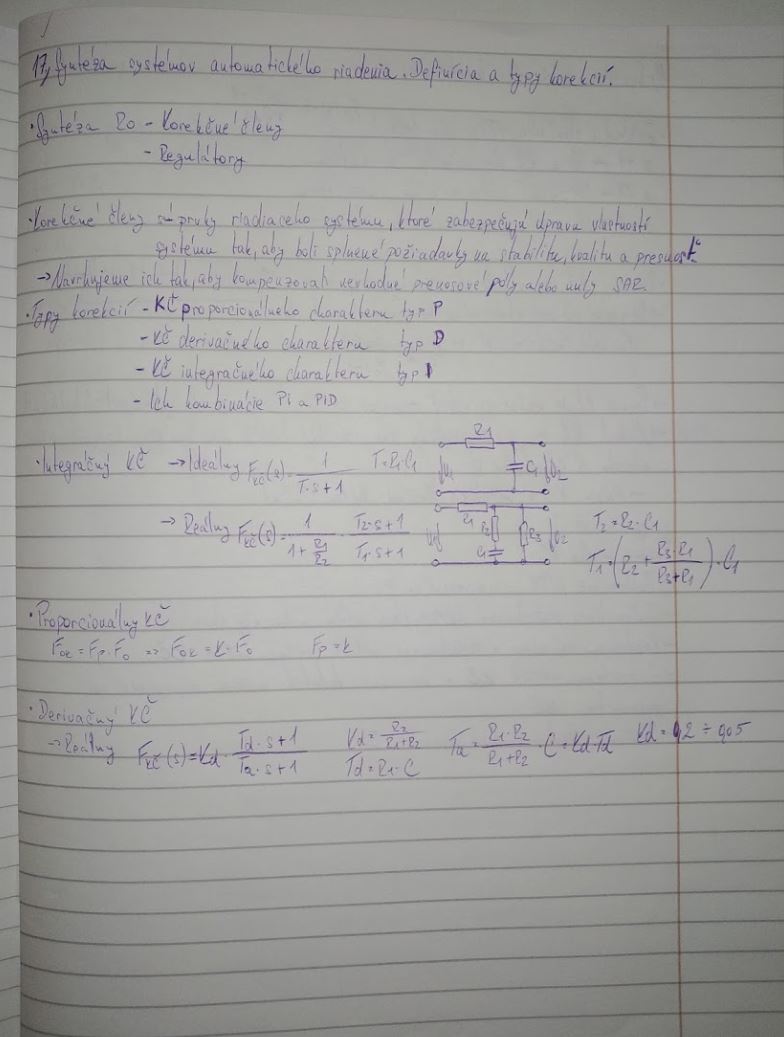 17, Syntéza systémov automatického riadenia. Definícia a typy korekcií.
• Syntéza RO - Korekčné členy
- Regulátory
• Korekčné členy sú prvky riadiaceho systému, ktoré zabezpečujú úpravu vlastností
systému tak, aby boli splnené požiadavky na stabilitu, kvalitu a presnosť.
→ Navrhujeme ich tak, aby kompenzovali nevhodné prenosové póly alebo nuly SAR.
• Typy korekcií - KČ proporcionálneho charakteru typ P
- KČ derivačného charakteru typ D
- KČ integračného charakteru typ I
- Ich kombinácie PI a PID
R1
• Integračný KČ → Ideálny FKČ(s) = 1 / (T·s+1) T=R1·C1 U1 C1 U2
→ Reálny FKČ(s) = 1 / (1 + R1/R2) · (T2·s+1) / (T1·s+1) U1 R1 R2 C1 R3 U2 T2 = R2·C1
T1 = (R2 + (R3·R1) / (R3+R1)) · C1
• Proporcionálny KČ
FOK = Fp·FO => FOK = K·FO Fp = k
• Derivačný KČ
→ Reálny FKČ(s) = Kd · (Td·s+1) / (Ta·s+1) Kd = R2 / (R1+R2) Ta = (R1·R2) / (R1+R2) · C = Kd·Td Kd = 0,2 ÷ 0,05
Td = R1·C